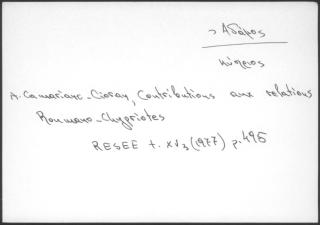 > Αδάμος
κύπριος
A. Camariano-Cioran, Contributions aux relations
Roumano-Chypriotes
RESEE t. XV₃ (1977) p. 495